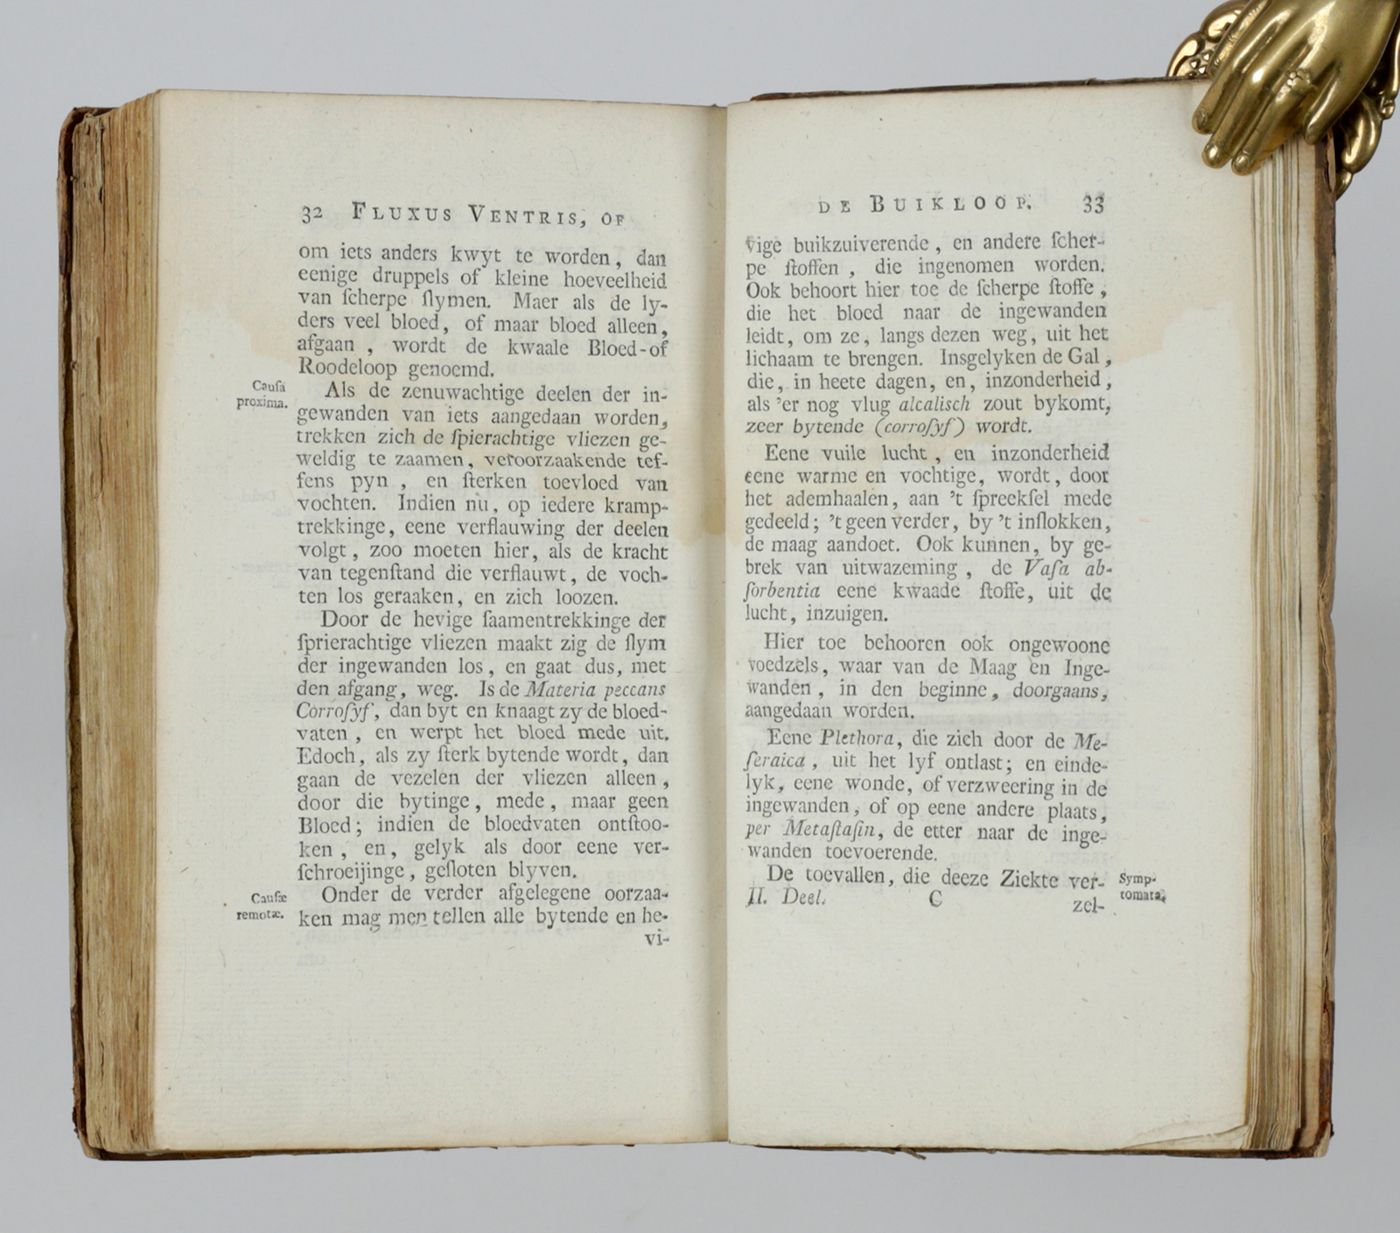 32 FLUXUS VENTRIS, OF
om iets anders kwyt te worden, dan
eenige druppels of kleine hoeveelheid
van ſcherpe ſlymen. Maer als de ly-
ders veel bloed, of maar bloed alleen,
afgaan, wordt de kwaale Bloed-of
Roodeloop genoemd.
Cauſa
proxima.
Als de zenuwachtige deelen der in-
gewanden van iets aangedaan worden,
trekken zich de ſpierachtige vliezen ge-
weldig te zaamen, veroorzaakende tef-
fens pyn, en ſterken toevloed van
vochten. Indien nu, op iedere kramp-
trekkinge, eene verflauwing der deelen
volgt, zoo moeten hier, als de kracht
van tegenſtand die verflauwt, de voch-
ten los geraaken, en zich loozen.
Door de hevige ſaamentrekkinge der
ſprierachtige vliezen maakt zig de ſlym
der ingewanden los, en gaat dus, met
den afgang, weg. Is de Materia peccans
Corroſyf, dan byt en knaagt zy de bloed-
vaten, en werpt het bloed mede uit.
Edoch, als zy ſterk bytende wordt, dan
gaan de vezelen der vliezen alleen,
door die bytinge, mede, maar geen
Bloed; indien de bloedvaten ontſtoo-
ken, en, gelyk als door eene ver-
ſchroeijinge, geſloten blyven.
Cauſæ
remotæ.
Onder de verder afgelegene oorzaa-
ken mag men tellen alle bytende en he-
vi-
DE BUIKLOOP. 33
vige buikzuiverende, en andere ſcher-
pe ſtoffen, die ingenomen worden.
Ook behoort hier toe de ſcherpe ſtoffe,
die het bloed naar de ingewanden
leidt, om ze, langs dezen weg, uit het
lichaam te brengen. Insgelyken de Gal,
die, in heete dagen, en, inzonderheid,
als 'er nog vlug alcalisch zout bykomt,
zeer bytende (corroſyf) wordt.
Eene vuile lucht, en inzonderheid
eene warme en vochtige, wordt, door
het ademhaalen, aan 't ſpreekſel mede
gedeeld; 't geen verder, by 't inſlokken,
de maag aandoet. Ook kunnen, by ge-
brek van uitwazeming, de Vaſa ab-
ſorbentia eene kwaade ſtoffe, uit de
lucht, inzuigen.
Hier toe behooren ook ongewoone
voedzels, waar van de Maag en Inge-
wanden, in den beginne, doorgaans,
aangedaan worden.
Eene Plethora, die zich door de Me-
ſeraica, uit het lyf ontlast; en einde-
lyk, eene wonde, of verzweering in de
ingewanden, of op eene andere plaats,
per Metaſtaſin, de etter naar de inge-
wanden toevoerende.
De toevallen, die deeze Ziekte ver-
Symp-
tomata.
II. Deel. C zel-